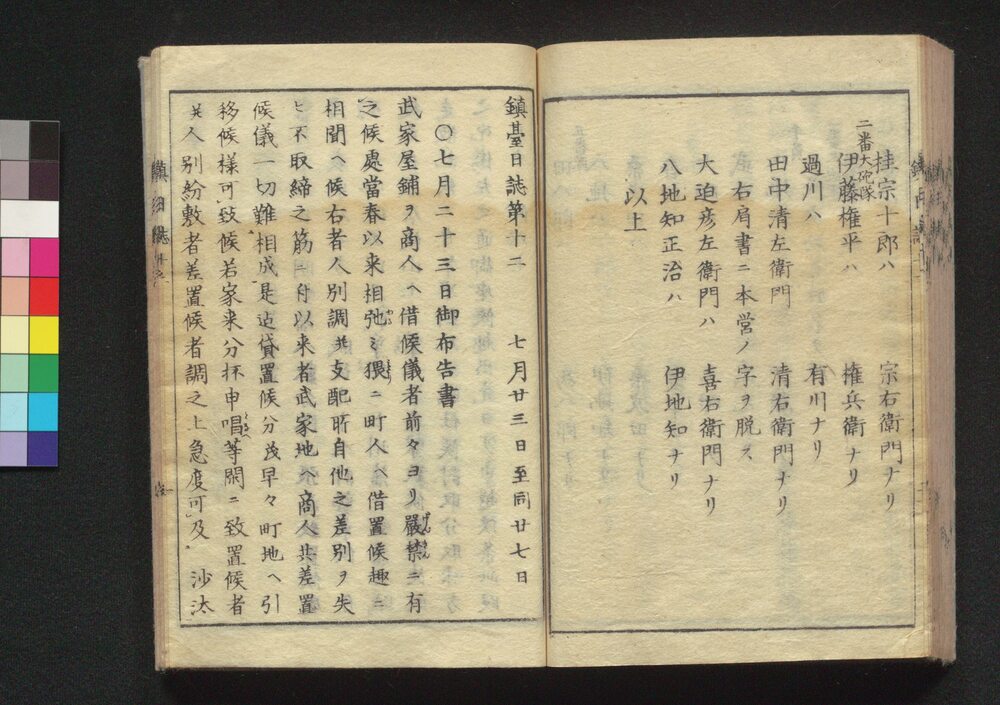 桂宗十郎ハ　宗右衛門ナリ
二番大砲隊
伊藤権平ハ　権兵衛ナリ
過川ハ　有川ナリ
田中清左衛門　清右衛門ナリ
右肩書ニ本営ノ字ヲ脱ス
大迫彦左衛門ハ　喜右衛門ナリ
八地知正治ハ　伊地知ナリ
以上
鎮臺日誌第十二　七月廿三日至同廿七日
〇七月二十三日御布告書
武家屋鋪ヲ商人ヘ借候儀者前々ヨリ嚴禁ニ有
之候處當春以来相弛ミ猥ニ町人ヘ借置候趣ニ
相聞ヘ候右者人別調其支配所自他之差別ヲ失
ヒ不取締之筋ニ付以来者武家地ヘ商人共差置
候儀一切難相成是迠貸置候分茂早々町地ヘ引
移候様可致候若家来分抔申唱等閑ニ致置候者
其人別紛敷者差置候者調之上急度可及　沙汰